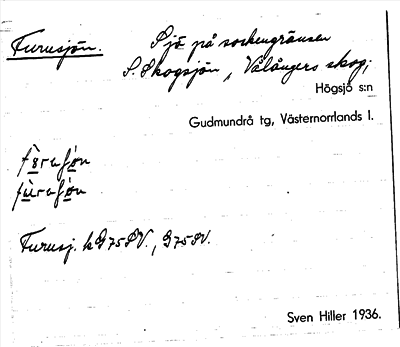 Furusjön.
Sjö på sockengränsen
S. Skogsjön, Vålångers skog;
Högsjö s:n
Gudmundrå tg, Västernorrlands l.
Furusj. k 975SV., 975SV.
Sven Hiller 1936.